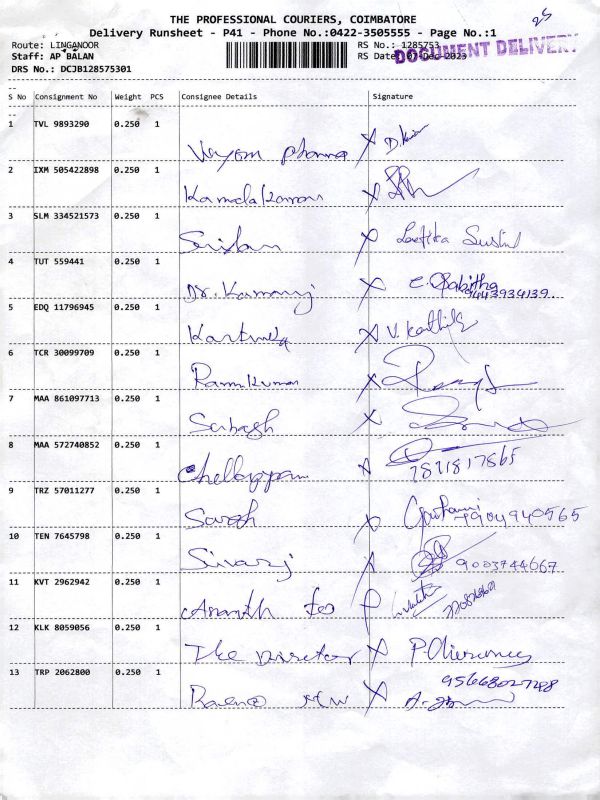 25
THE PROFESSIONAL COURIERS, COIMBATORE
Delivery Runsheet - P41 - Phone No.:0422-3505555 - Page No.:1
Route: LINGANOOR RS No.: 1285753
Staff: AP BALAN RS Date: 07-Dec-2023
DOCUMENT DELIVERY
DRS No.: DCJB128575301
S No Consignment No Weight PCS Consignee Details Signature
1 TVL 9893290 0.250 1 Vayom pharma X
2 IXM 505422898 0.250 1 X
3 SLM 334521573 0.250 1 X
4 TUT 559441 0.250 1 Dr. Kamaraj X 9443934139
5 EDQ 11796945 0.250 1 X V. Karthik
6 TCR 30099709 0.250 1 Ramkumar X
7 MAA 861097713 0.250 1 Subash X
8 MAA 572740852 0.250 1 Chellappan X 7871817565
9 TRZ 57011277 0.250 1 X 7904940565
10 TEN 7645798 0.250 1 Sivaraj X 9003744667
11 KVT 2962942 0.250 1 Ananth
12 KLK 8059056 0.250 1 The Director X
13 TRP 2062800 0.250 1 X